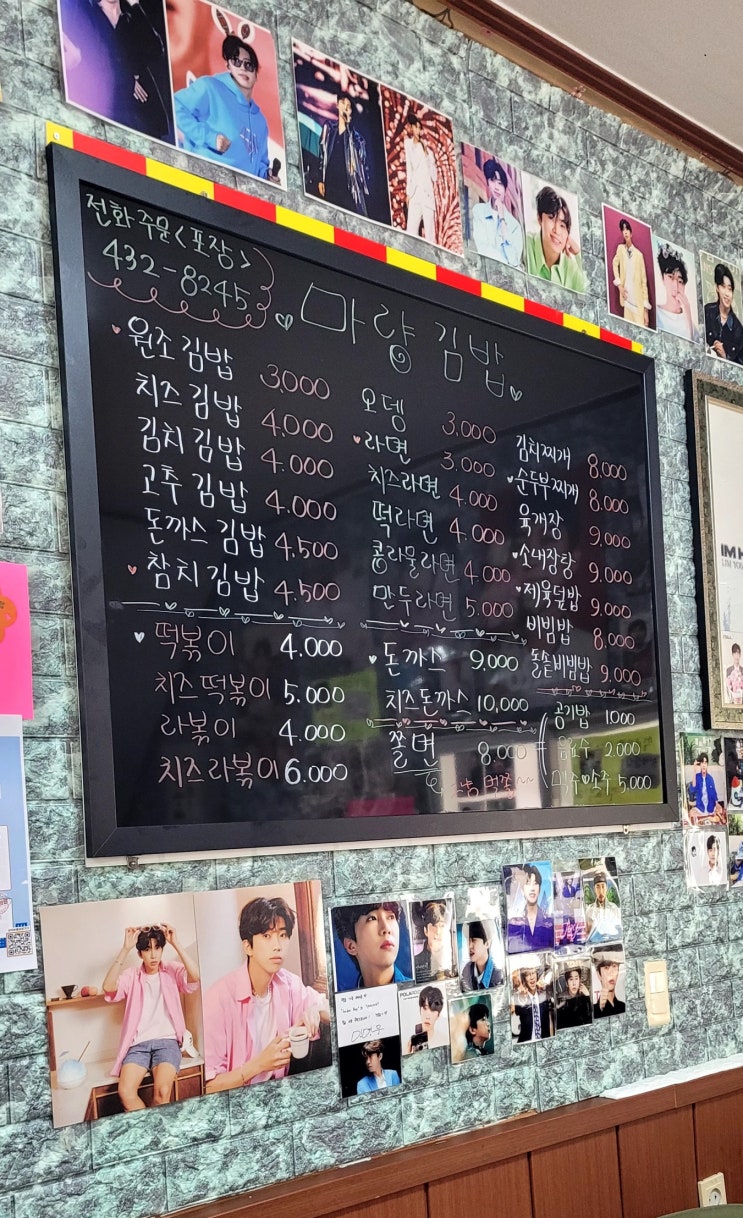 전화주문<포장>
432-8245
마량김밥
원조김밥 3,000
치즈김밥 4,000
김치김밥 4.000
고추김밥 4.000
돈까스김밥 4,500
참치김밥 4.500
떡볶이 4.000
치즈떡볶이 5.000
라볶이 4.000
치즈라볶이 6.000
오뎅 3.000
라면 3.000
치즈라면 4.000
떡라면 4.000
콩나물라면 4.000
만두라면 5.000
돈까스 9,000
치즈돈까스 10,000
쫄면 8.000
김치찌개 8.000
순두부찌개 8.000
육개장 9,000
소내장탕 9.000
제육덮밥 9,000
비빔밥 8,000
돌솥비빔밥 9,000
공기밥 1000
음료수 2.000
맥주 소주 5,000